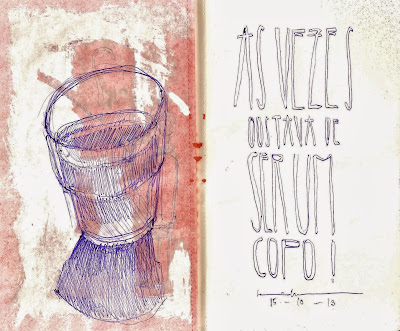 AS VEZES
GOSTAVA DE
SER UM
COPO !
15 - 10 - 13